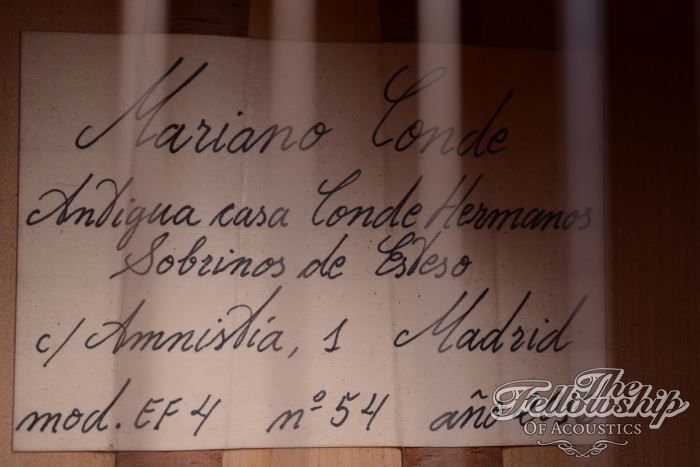 Mariano Conde
Antigua casa Conde Hermanos
Sobrinos de Esteso
c/ Amnistía, 1 Madrid
mod. EF4 nº 54 año
The
Fellowship
OF ACOUSTICS